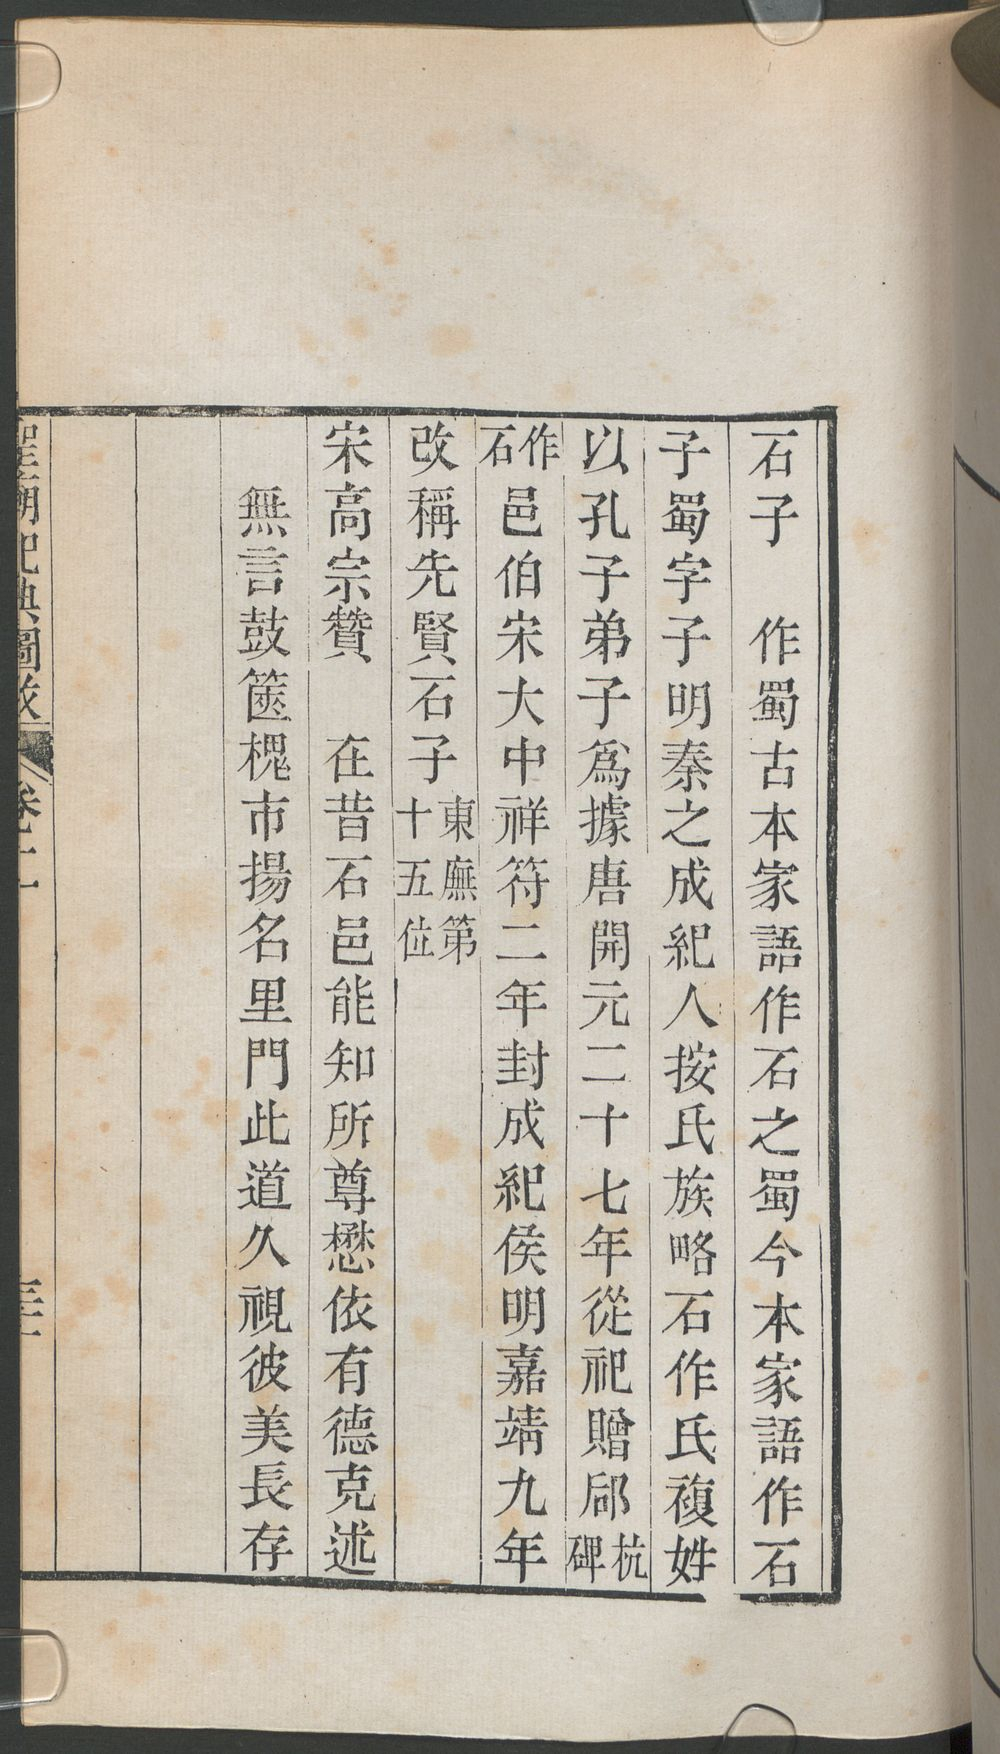 石子　作蜀古本家語作石之蜀今本家語作石
子蜀字子明秦之成紀人按氏族略石作氏複姓
以孔子弟子爲據唐開元二十七年從祀贈郈杭碑
作石邑伯宋大中祥符二年封成紀侯明嘉靖九年
改稱先賢石子東廡第十五位
宋高宗贊　在昔石邑能知所尊懋依有德克述
無言鼓篋槐市揚名里門此道久視彼美長存
聖朝祀典圖攷　卷二　三十二